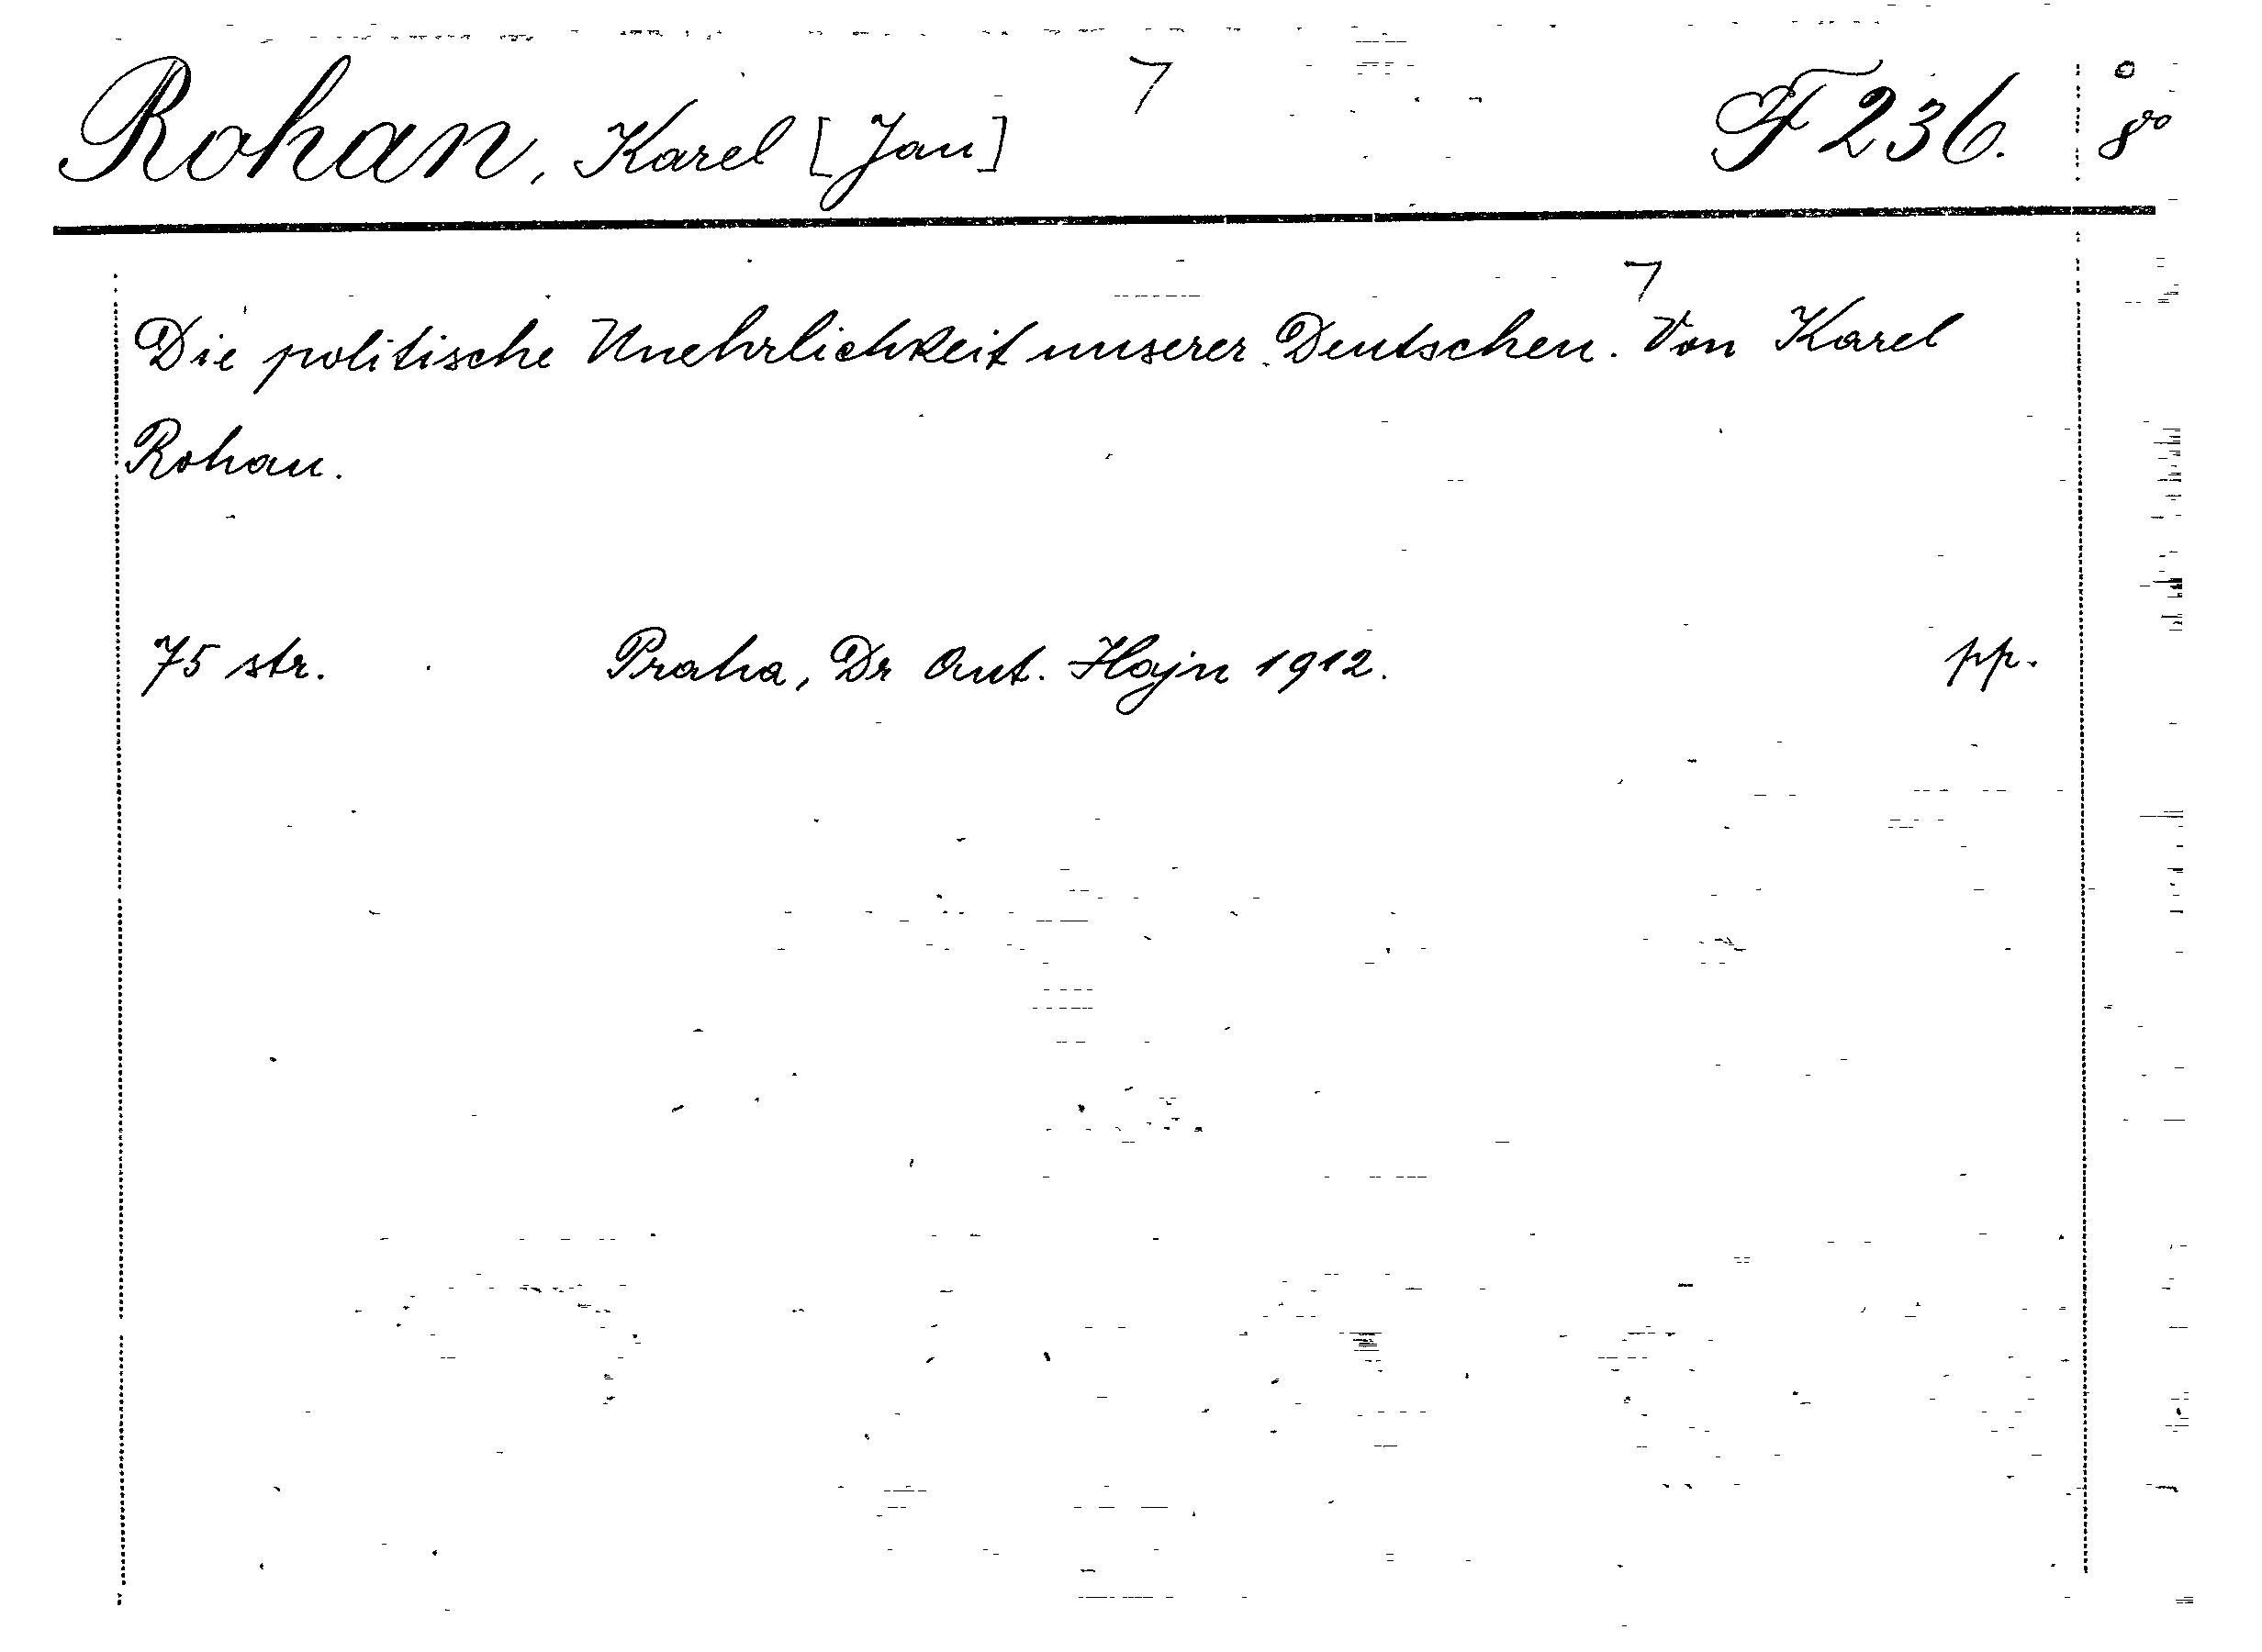 Rohan, Karel [Jan] F 236. 8°
Die politische Unehrlichkeit unserer Deutschen. Von Karel
Rohan.
75 str. Praha, Dr Ant. Hajn 1912. pp.